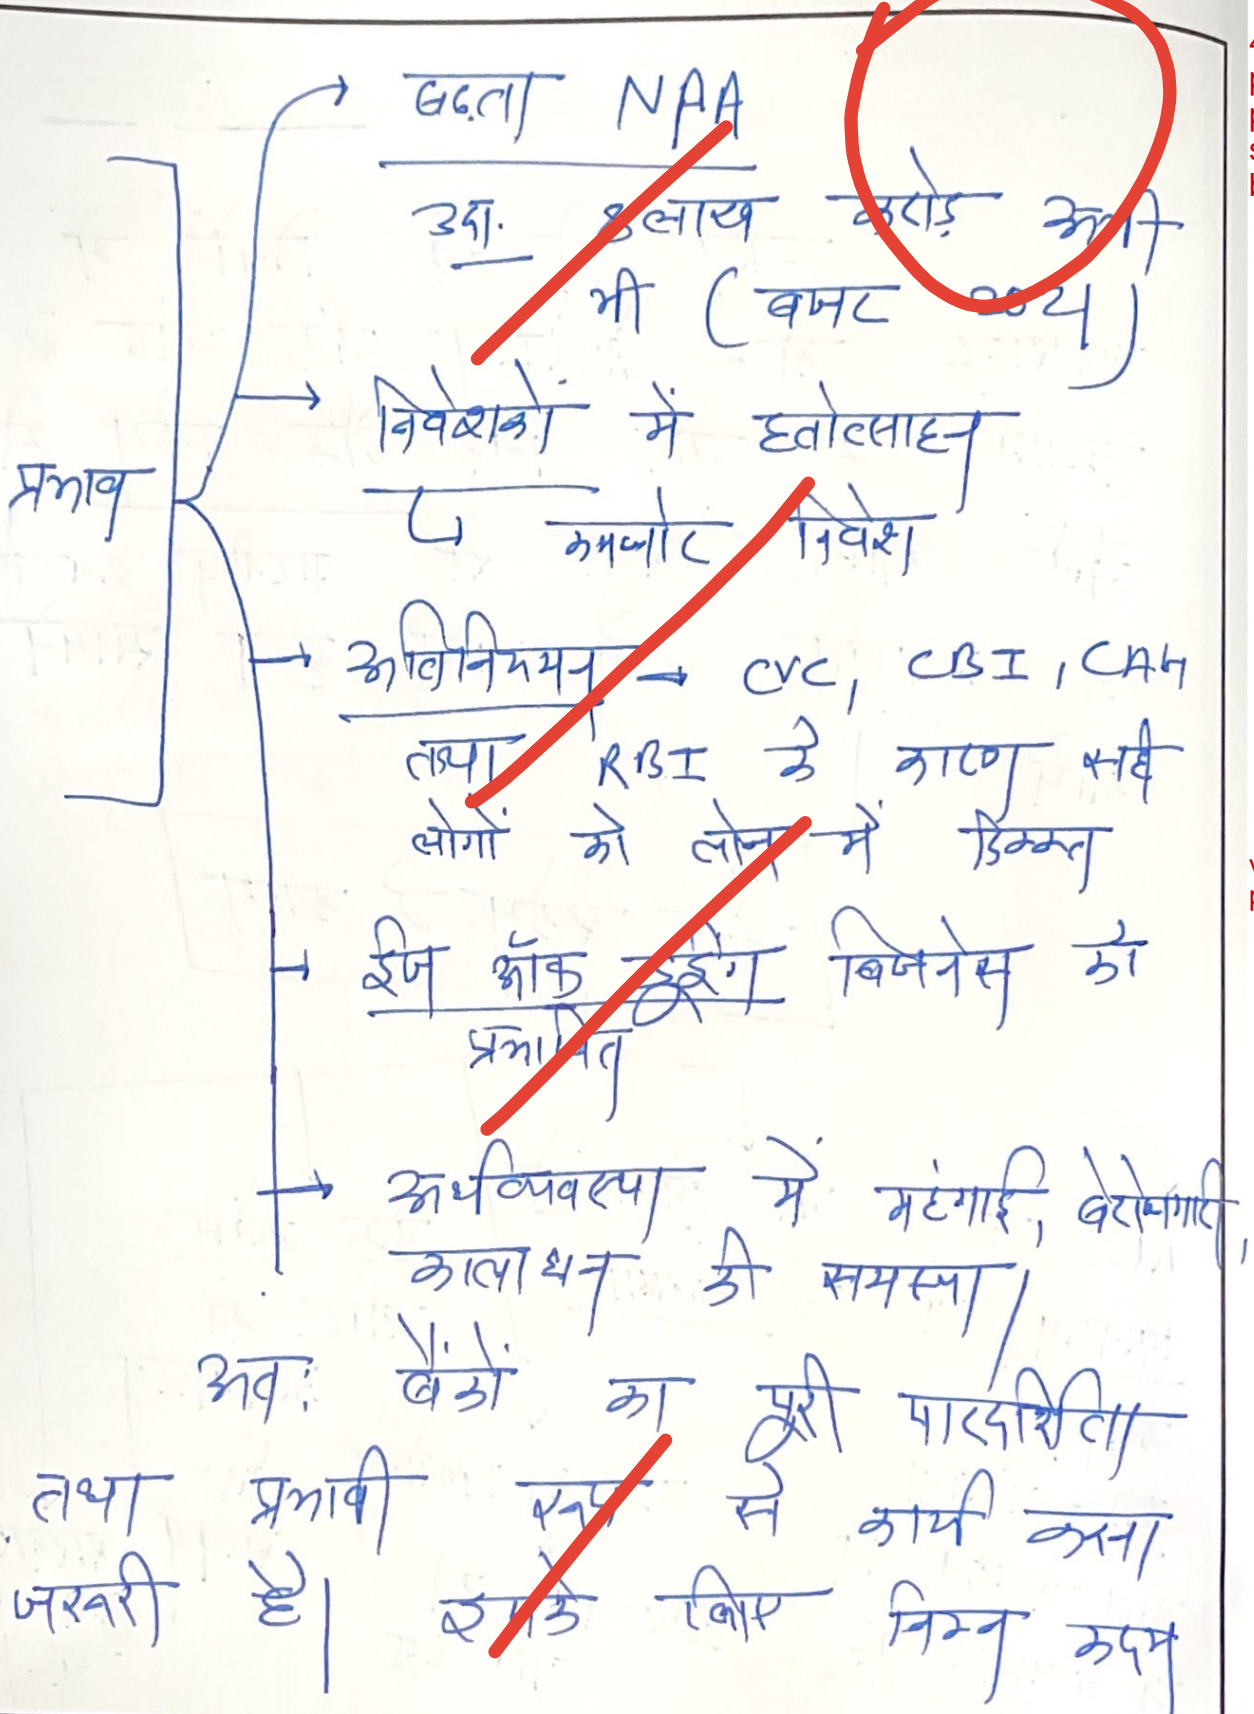 बढ़ता NAA
उदा. 8 लाख करोड़ अभी
भी (बजट 2024)
निवेशकों में हतोत्साहन
कमजोर निवेश
प्रभाव
अतिनियमन → CVC, CBI, CAG
तथा RBI के कारण सही
लोगों को लोन में दिक्कत
ईज ऑफ डूइंग बिजनेस को
प्रभावित
अर्थव्यवस्था में महंगाई, बेरोजगारी,
कालाधन की समस्या।
अतः बैंकों का पूरी पारदर्शिता
तथा प्रभावी रूप से कार्य करना
जरूरी है। इसके लिए निम्न कदम